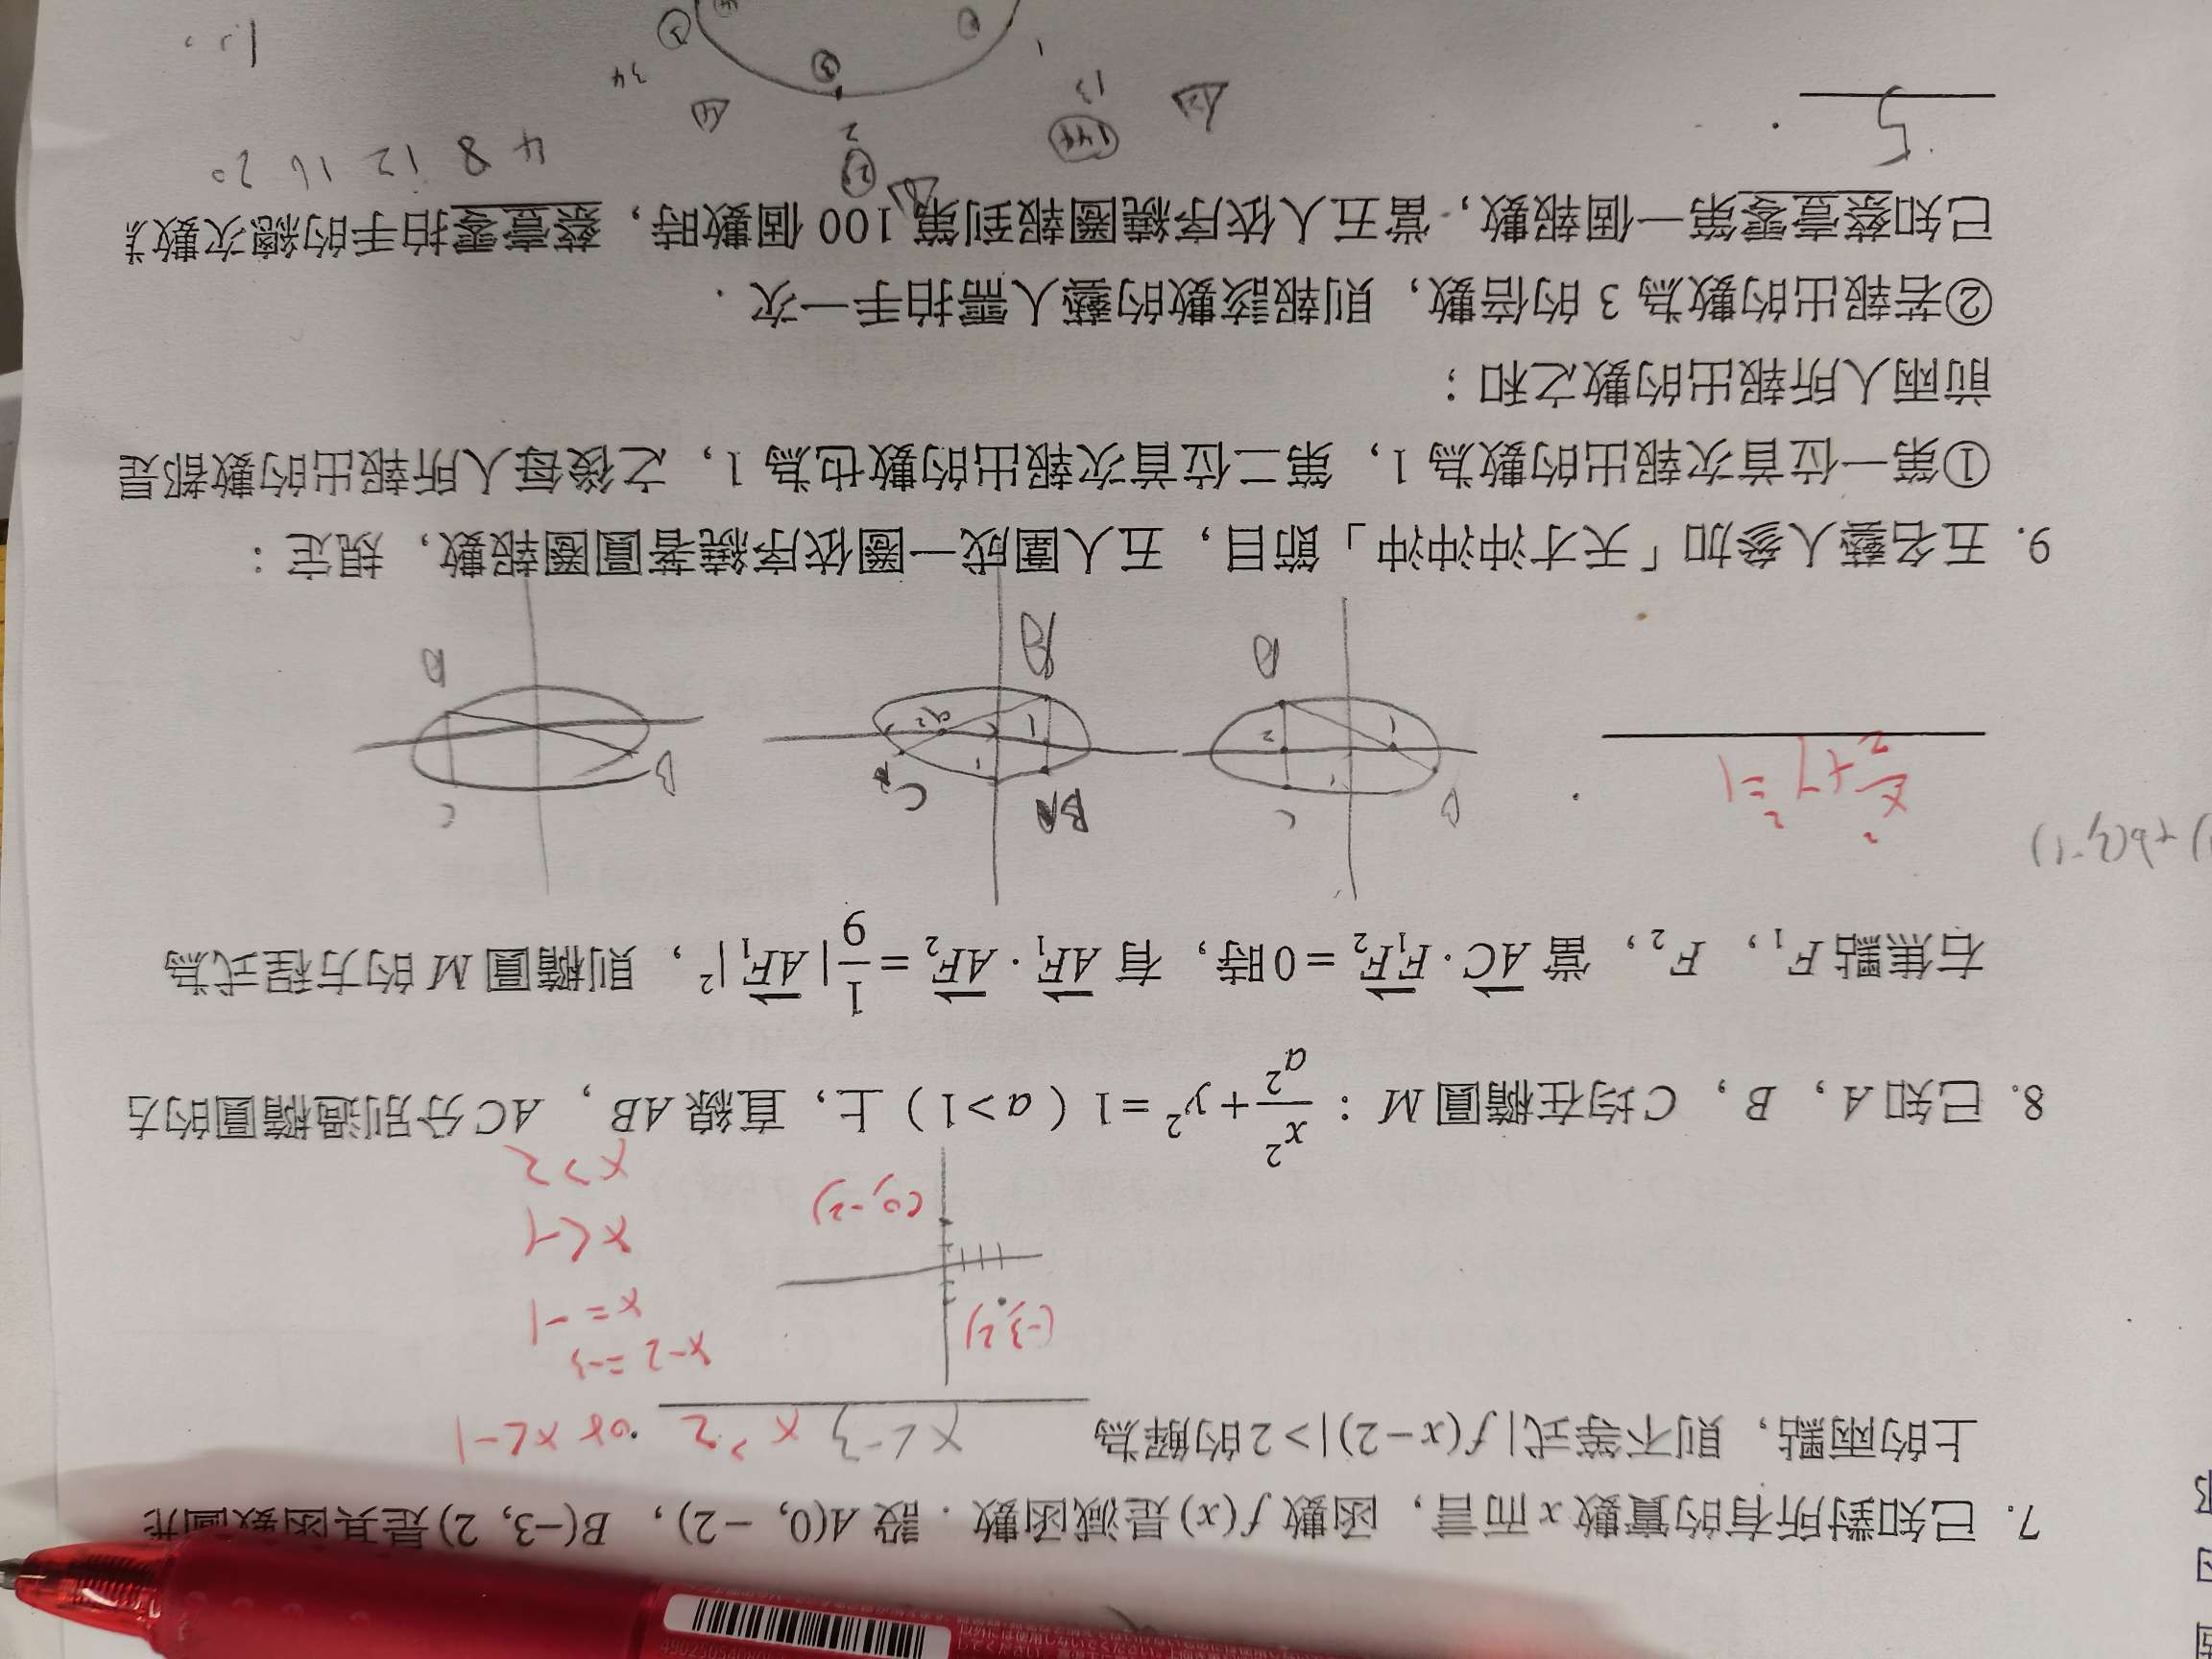 7. 已知對所有的實數 x 而言，函數 f(x) 是減函數．設 A(0, −2)，B(−3, 2) 是其函數圖形
上的兩點，則不等式 | f(x−2) | > 2 的解為 x<-3 x>2 or x<-1
x-2=-3
(-3,2)
x=-1
x<-1
(0,-2)
x>2
8. 已知 A，B，C 均在橢圓 M：x²/a² + y² = 1（a > 1）上，直線 AB，AC 分別過橢圓的左
右焦點 F₁，F₂，當 AC · F₁F₂ = 0 時，有 AF₁ · AF₂ = 1/9 | AF₁ |²，則橢圓 M 的方程式為
x²/2 + y² = 1
9. 五名藝人參加「天才沖沖沖」節目，五人圍成一圈依序繞著圓圈報數，規定：
①第一位首次報出的數為 1，第二位首次報出的數也為 1，之後每人所報出的數都是
前兩人所報出的數之和；
②若報出的數為 3 的倍數，則報該數的藝人需拍手一次．
已知蔡壹零第一個報數，當五人依序繞圈報到第 100 個數時，蔡壹零拍手的總次數為
5
4 8 12 16 20
144
13
2
34